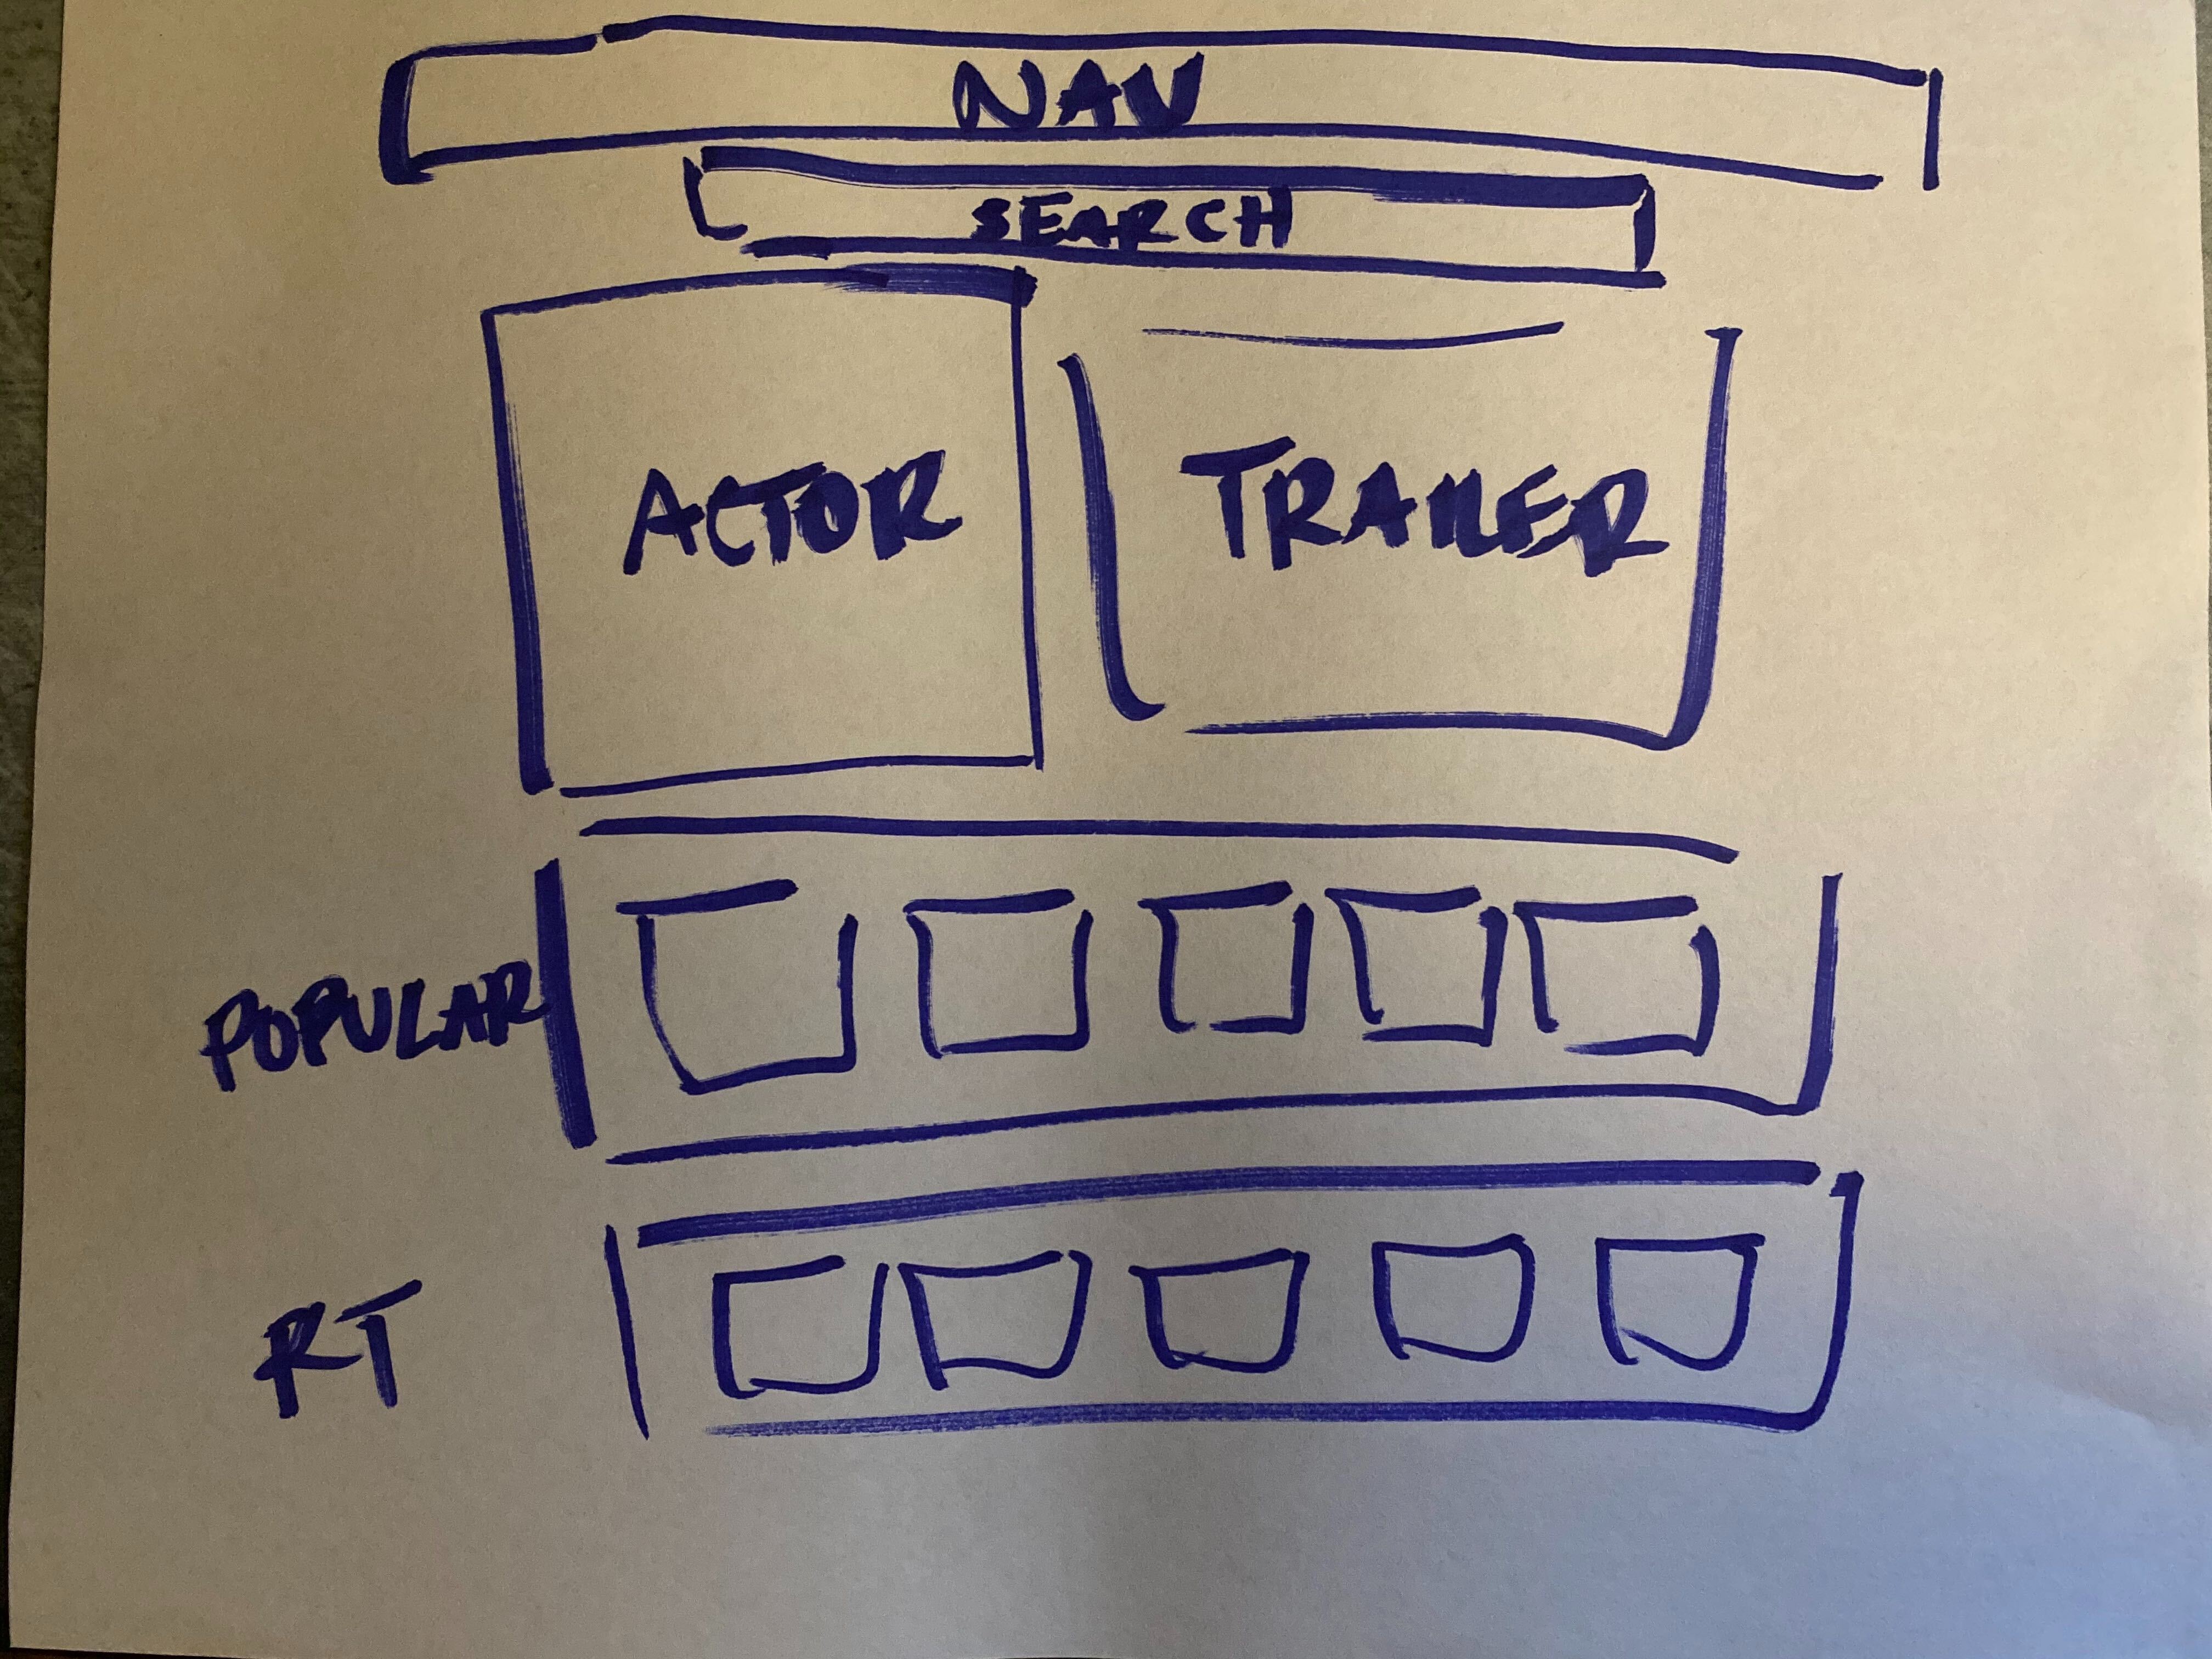 NAV
SEARCH
ACTOR
TRAILER
POPULAR
RT